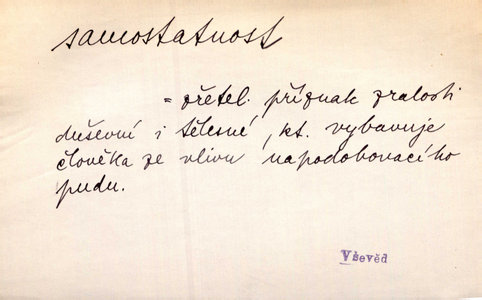 samostatnost
= zřetel. příznak zralosti
duševní i tělesné, kt. vybavuje
člověka ze vlivu napodobovacího
pudu.
Vševěd